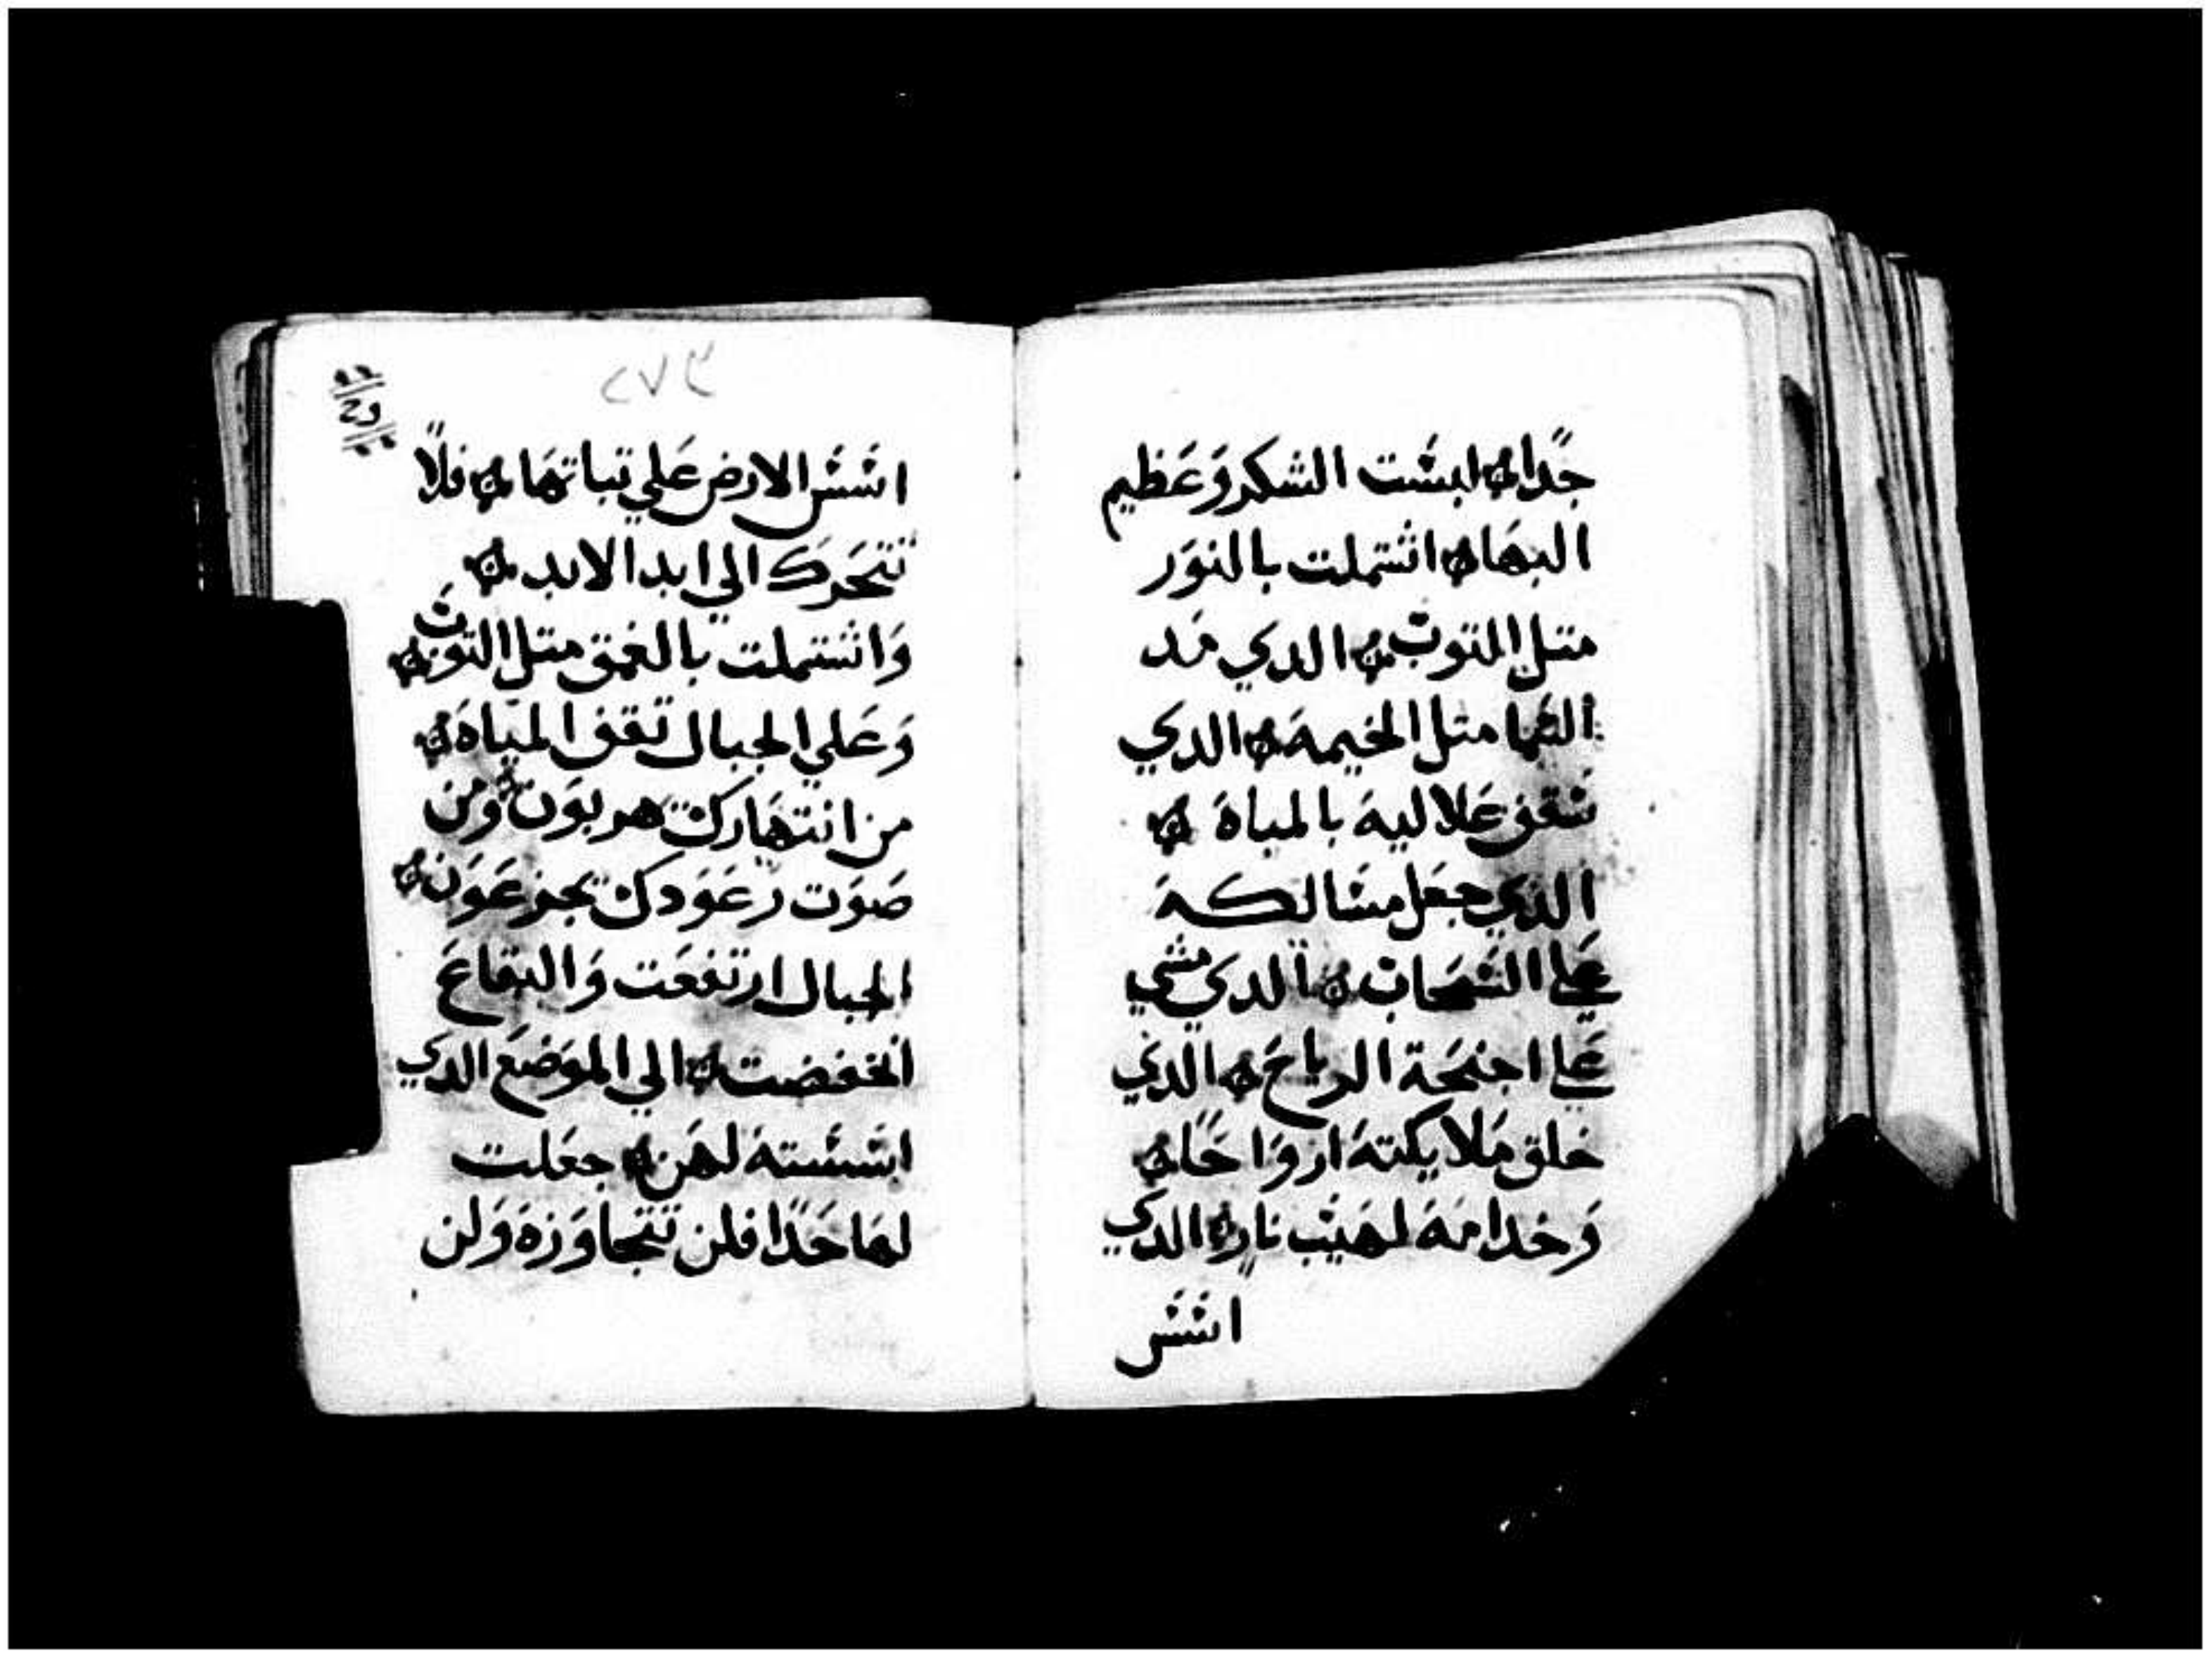 جدًا ۞ لبست الشكر وَعَظيم
البهَا ۞ اشتملت بالنوَر
متل التوبّ ۞ الدي مَد
السَّما متل الخيمهَ ۞ الدي
سَقف عَلاليهَ بالمياهَ ۞
الدي جعَل مسَالكهَ
عَلي السَّحَابّ ۞ الدي مشي
عَلي اجنحَة الرياحَ ۞ الدي
خلق مَلايكتهَ اروَاحًا ۞
وَخدامَهَ لهيبّ نار ۞ الدي
اسَّسَ
٢٧٣
اسَّسَ الارض عَلي تباتهَا ۞ فلاً
تتحَرك الي ابد الابد ۞
وَاشتملت بالغمق متل التوبّ ۞
وَعَلي الجبال تقف المياهَ ۞
من انتهَارك هربوَن ۞ وَمن
صَوَت رعَوَدك يجزعَوَن ۞
الجبال ارتفعَت وَالبقاعَ
انخفضت ۞ الي الموَضعَ الدي
اسَّسَته لهَن ۞ جعَلت
لهَا حَدًا فلن تتجاوَزهَ وَلن